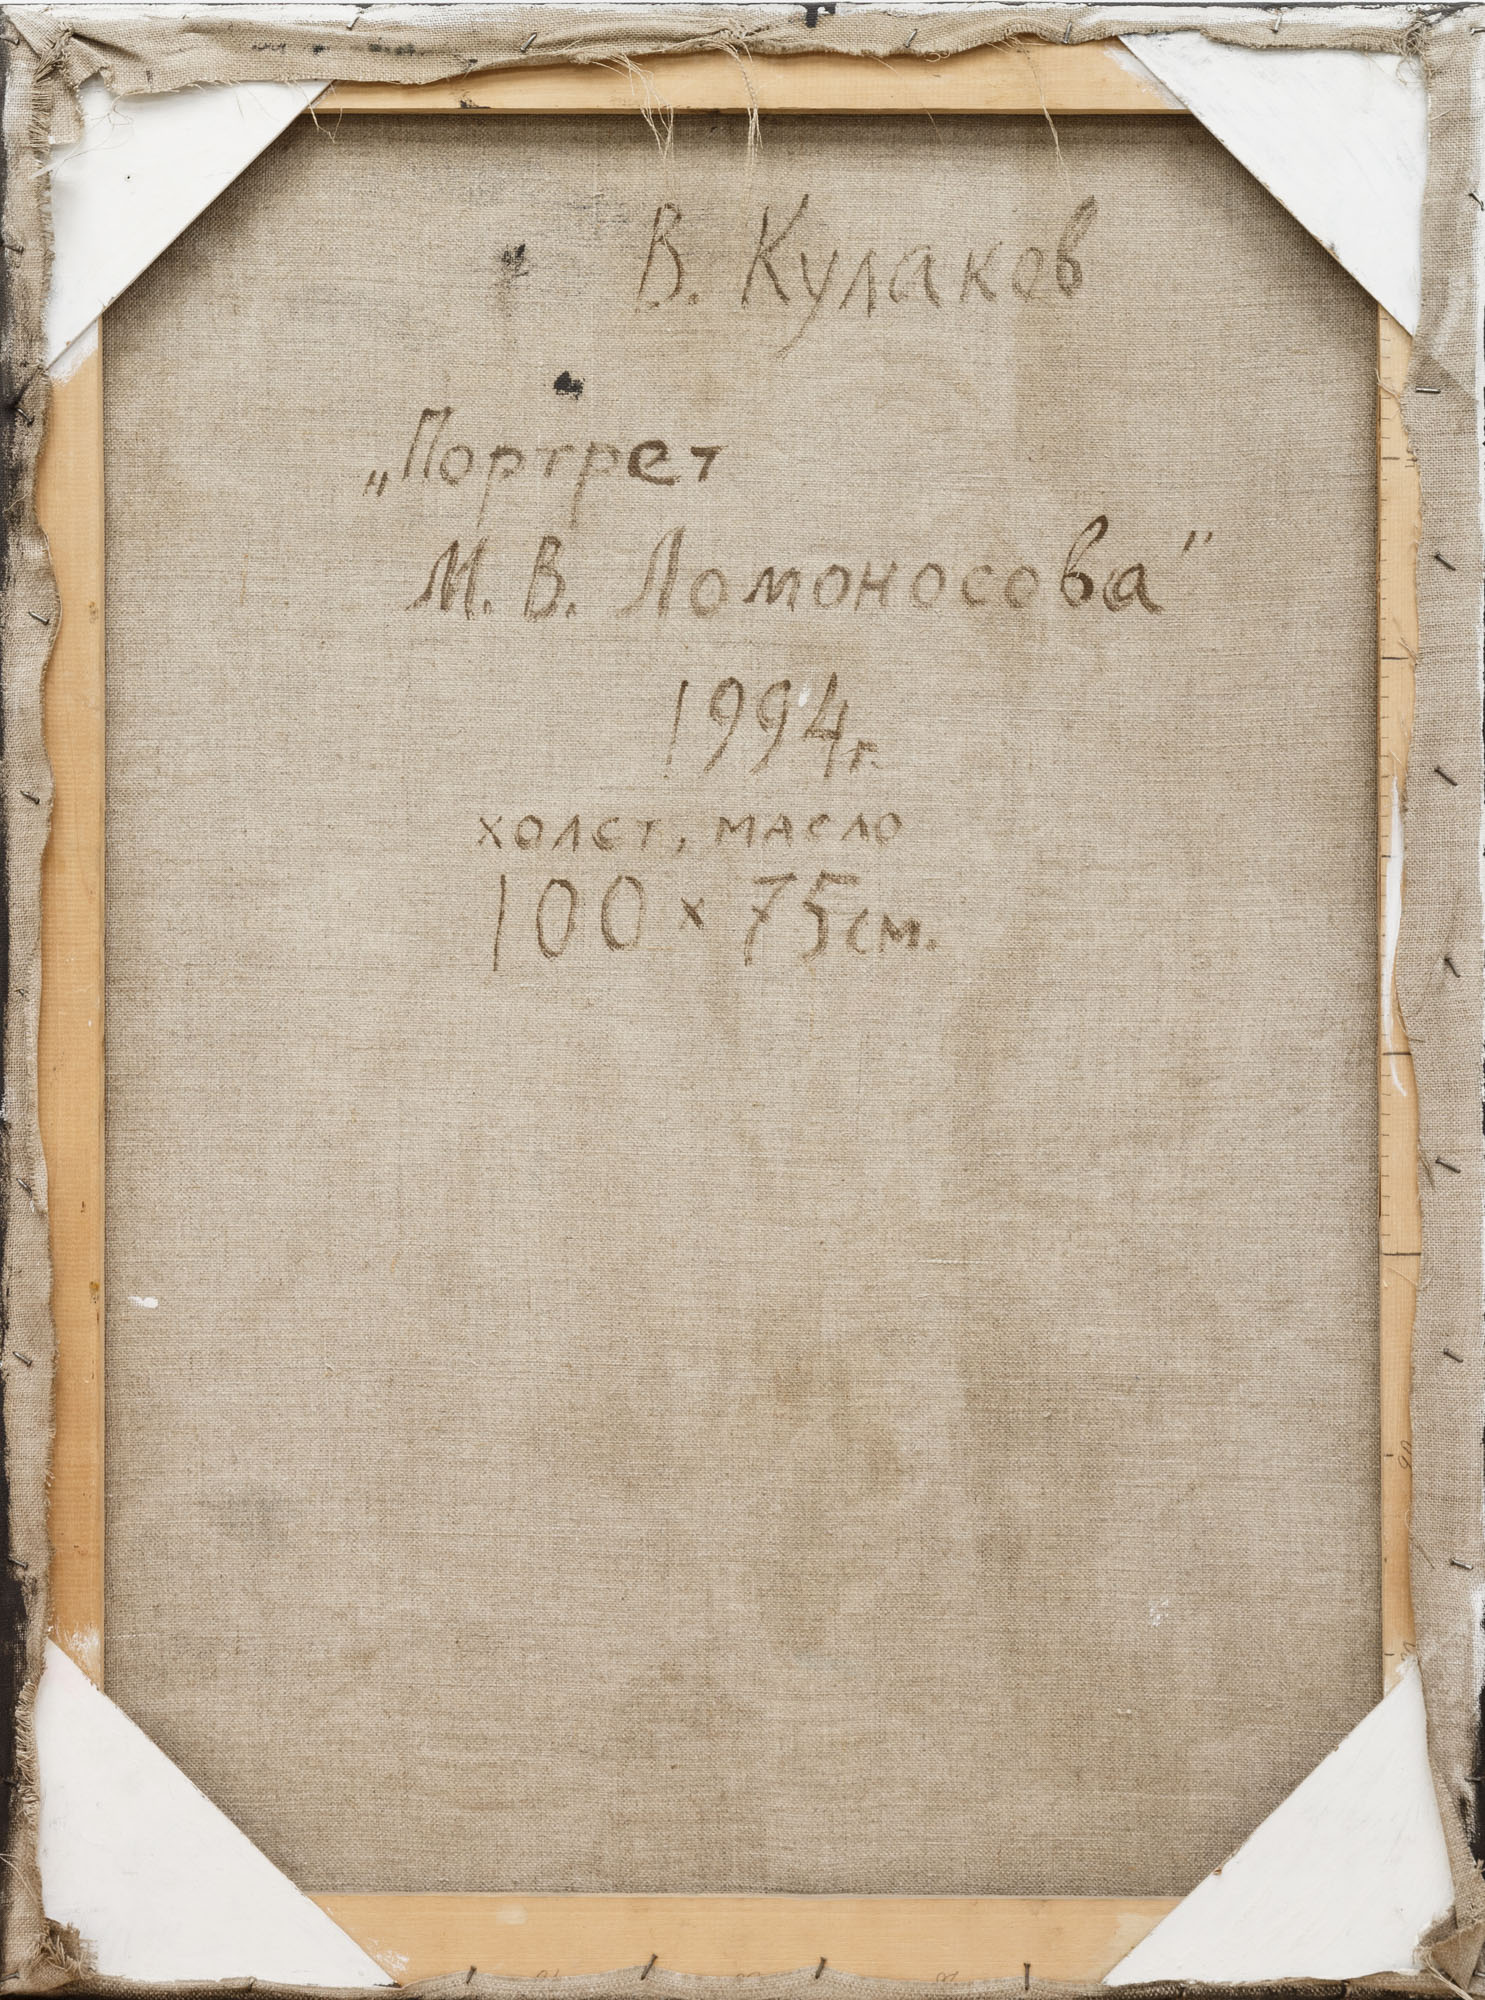 В. Кулаков
„Портрет
М. В. Ломоносова"
1994 г.
холст, масло
100 x 75 см.